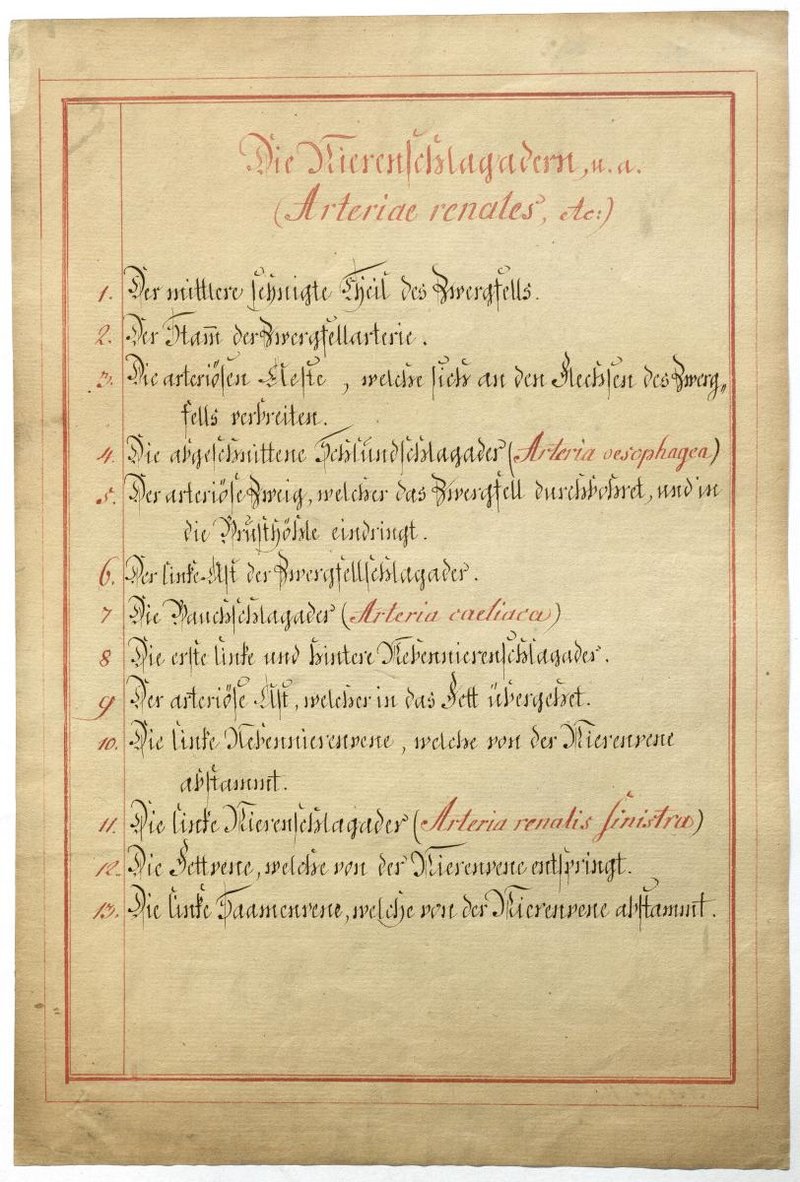 Die Nierenschlagadern, u. a.
(Arteriae renales, etc:)
1. Der mittlere sehnigte Theil des Zwergfells.
2. Der Stam̄ der Zwergfellarterie.
3. Die arteriösen Aeste, welche sich an den Flechsen des Zwerg„
fells verbreiten.
4. Die abgeschnittene Schlundschlagader (Arteria oesophagea)
5. Der arteriöse Zweig, welcher das Zwergfell durchbohret, und in
die Brusthöhle eindringt.
6. Der linke Ast der Zwergfellschlagader.
7 Die Bauchschlagader (Arteria caeliaca)
8 Die erste linke und hintere Nebennierenschlagader.
9 Der arteriöse Ast, welcher in das Fett übergehet.
10. Die linke Nebennierenvene, welche von der Nierenvene
abstammt.
11. Die linke Nierenschlagader (Arteria renalis sinistra)
12. Die Fettvene, welche von der Nierenvene entspringt.
13. Die linke Saamenvene, welche von der Nierenvene abstammt.